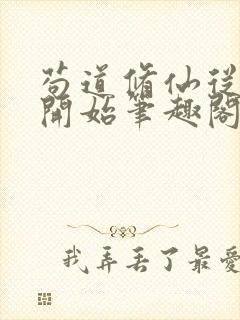 苟道脩仙從
開始筆趣閣
我弄丟了最愛